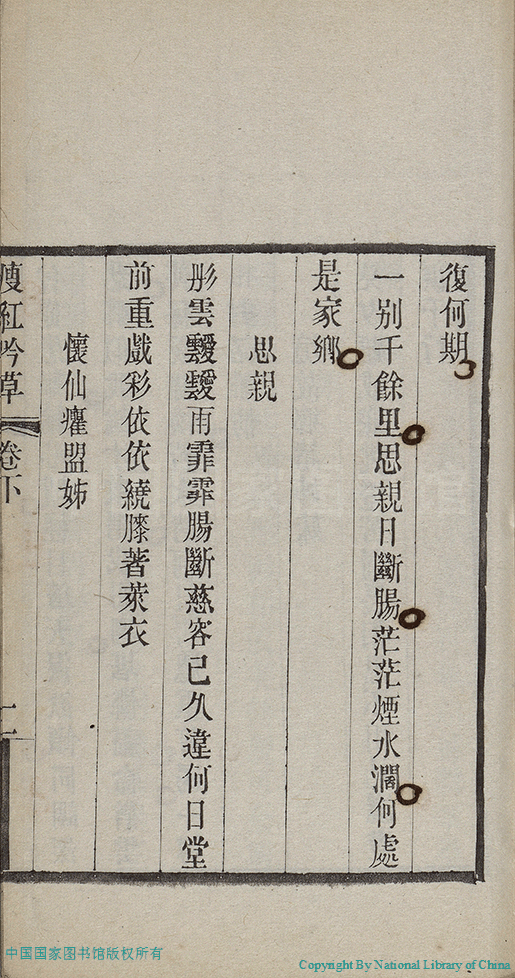 復何期
一別千餘里思親日斷腸茫茫煙水濶何處
是家鄉
思親
彤雲靉靉雨霏霏腸斷慈容已久違何日堂
前重戲彩依依繞膝著萊衣
懷仙癯盟姊
瘦紅吟草 卷下
中国国家图书馆版权所有
Copyright By National Library of China